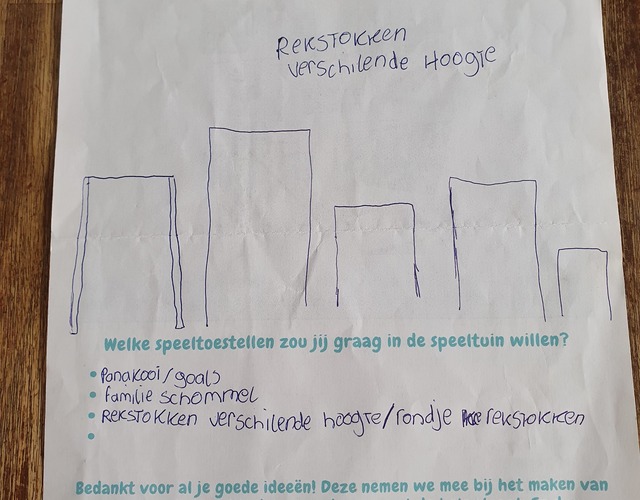 Rekstokken
verschilende Hoogte
Welke speeltoestellen zou jij graag in de speeltuin willen?
• Panakooi/goals
• familie schommel
• Rekstokken verschilende hoogte/rondje rekstokken
•
Bedankt voor al je goede ideeën! Deze nemen we mee bij het maken van